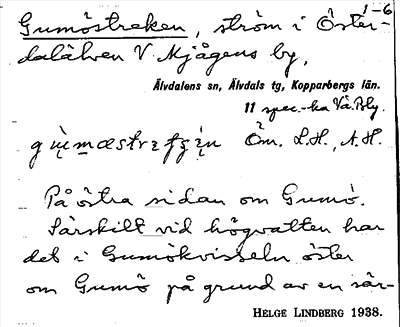 1-6
Gumöstreken, ström i Öster-
dalälven V Mjågens by,
Älvdalens sn, Älvdals tg, Kopparbergs län.
11 spec.-ka Vä. Bly.
Öm. L.H., A.H.
På östra sidan om Gumö.
Särskilt vid högvatten har
det i Gumökvisseln öster
om Gumö på grund av en sär-
HELGE LINDBERG 1938.